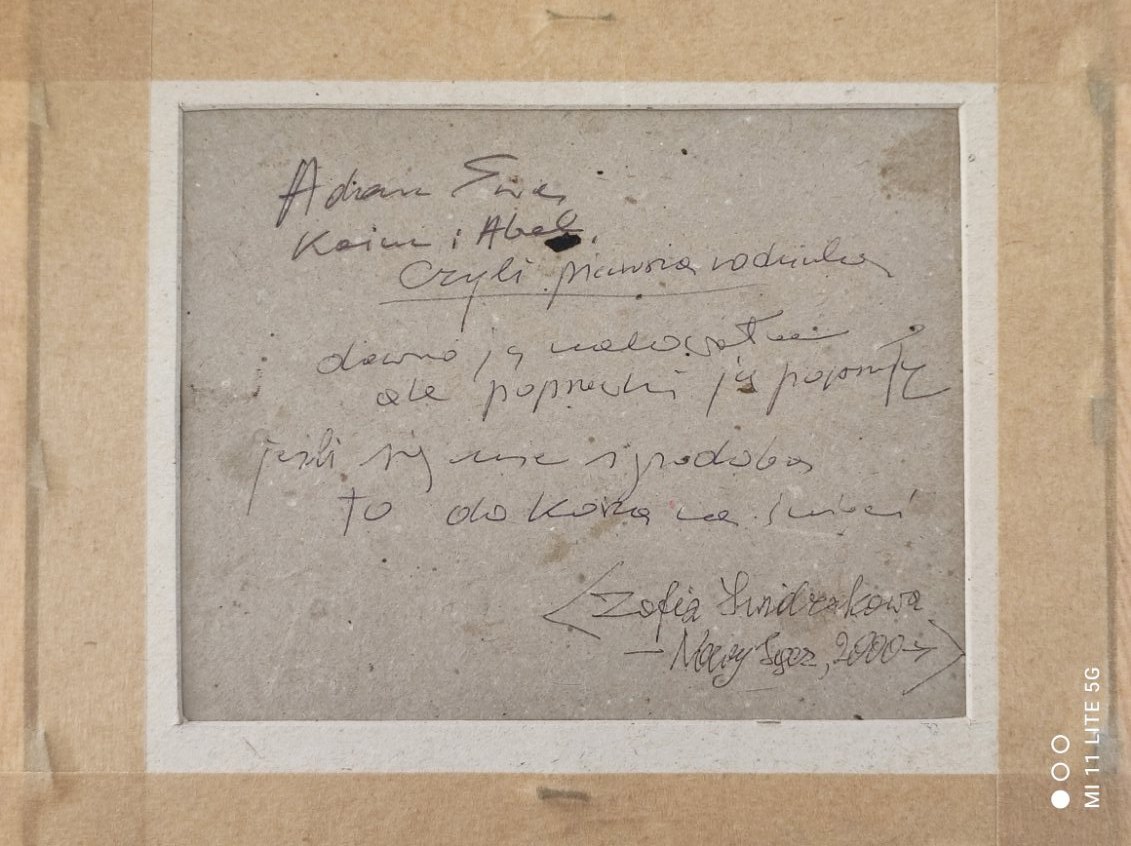 Adam Ewa,
Kain i Abel.
Czyli pierwsza rodzinka
dawno ją malowałam
ale poprawki ją
jeśli się nie spodoba
to do kosza na śmieci
<Zofia Świdrakowa
- Nowy Sącz, 2000 ->
MI 11 LITE 5G